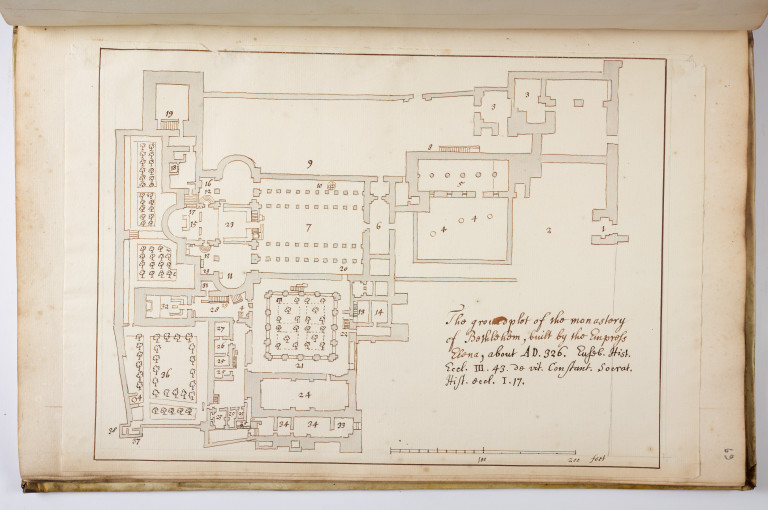 19
3
3
8
9
18
16
12
10
5
17
15
23
7
6
4
4
2
1
12
13
11
20
31
32
28
14
27
24
21
36
24
34
34
34
33
38
37
The groundplot of the monastery
of Bethlehem, built by the Empress
Elena, about AD. 326. Euseb. Hist.
Eccl. III. 43. de vit. Constant. Socrat.
Hist. eccl. I. 17.
100
200
feet
69